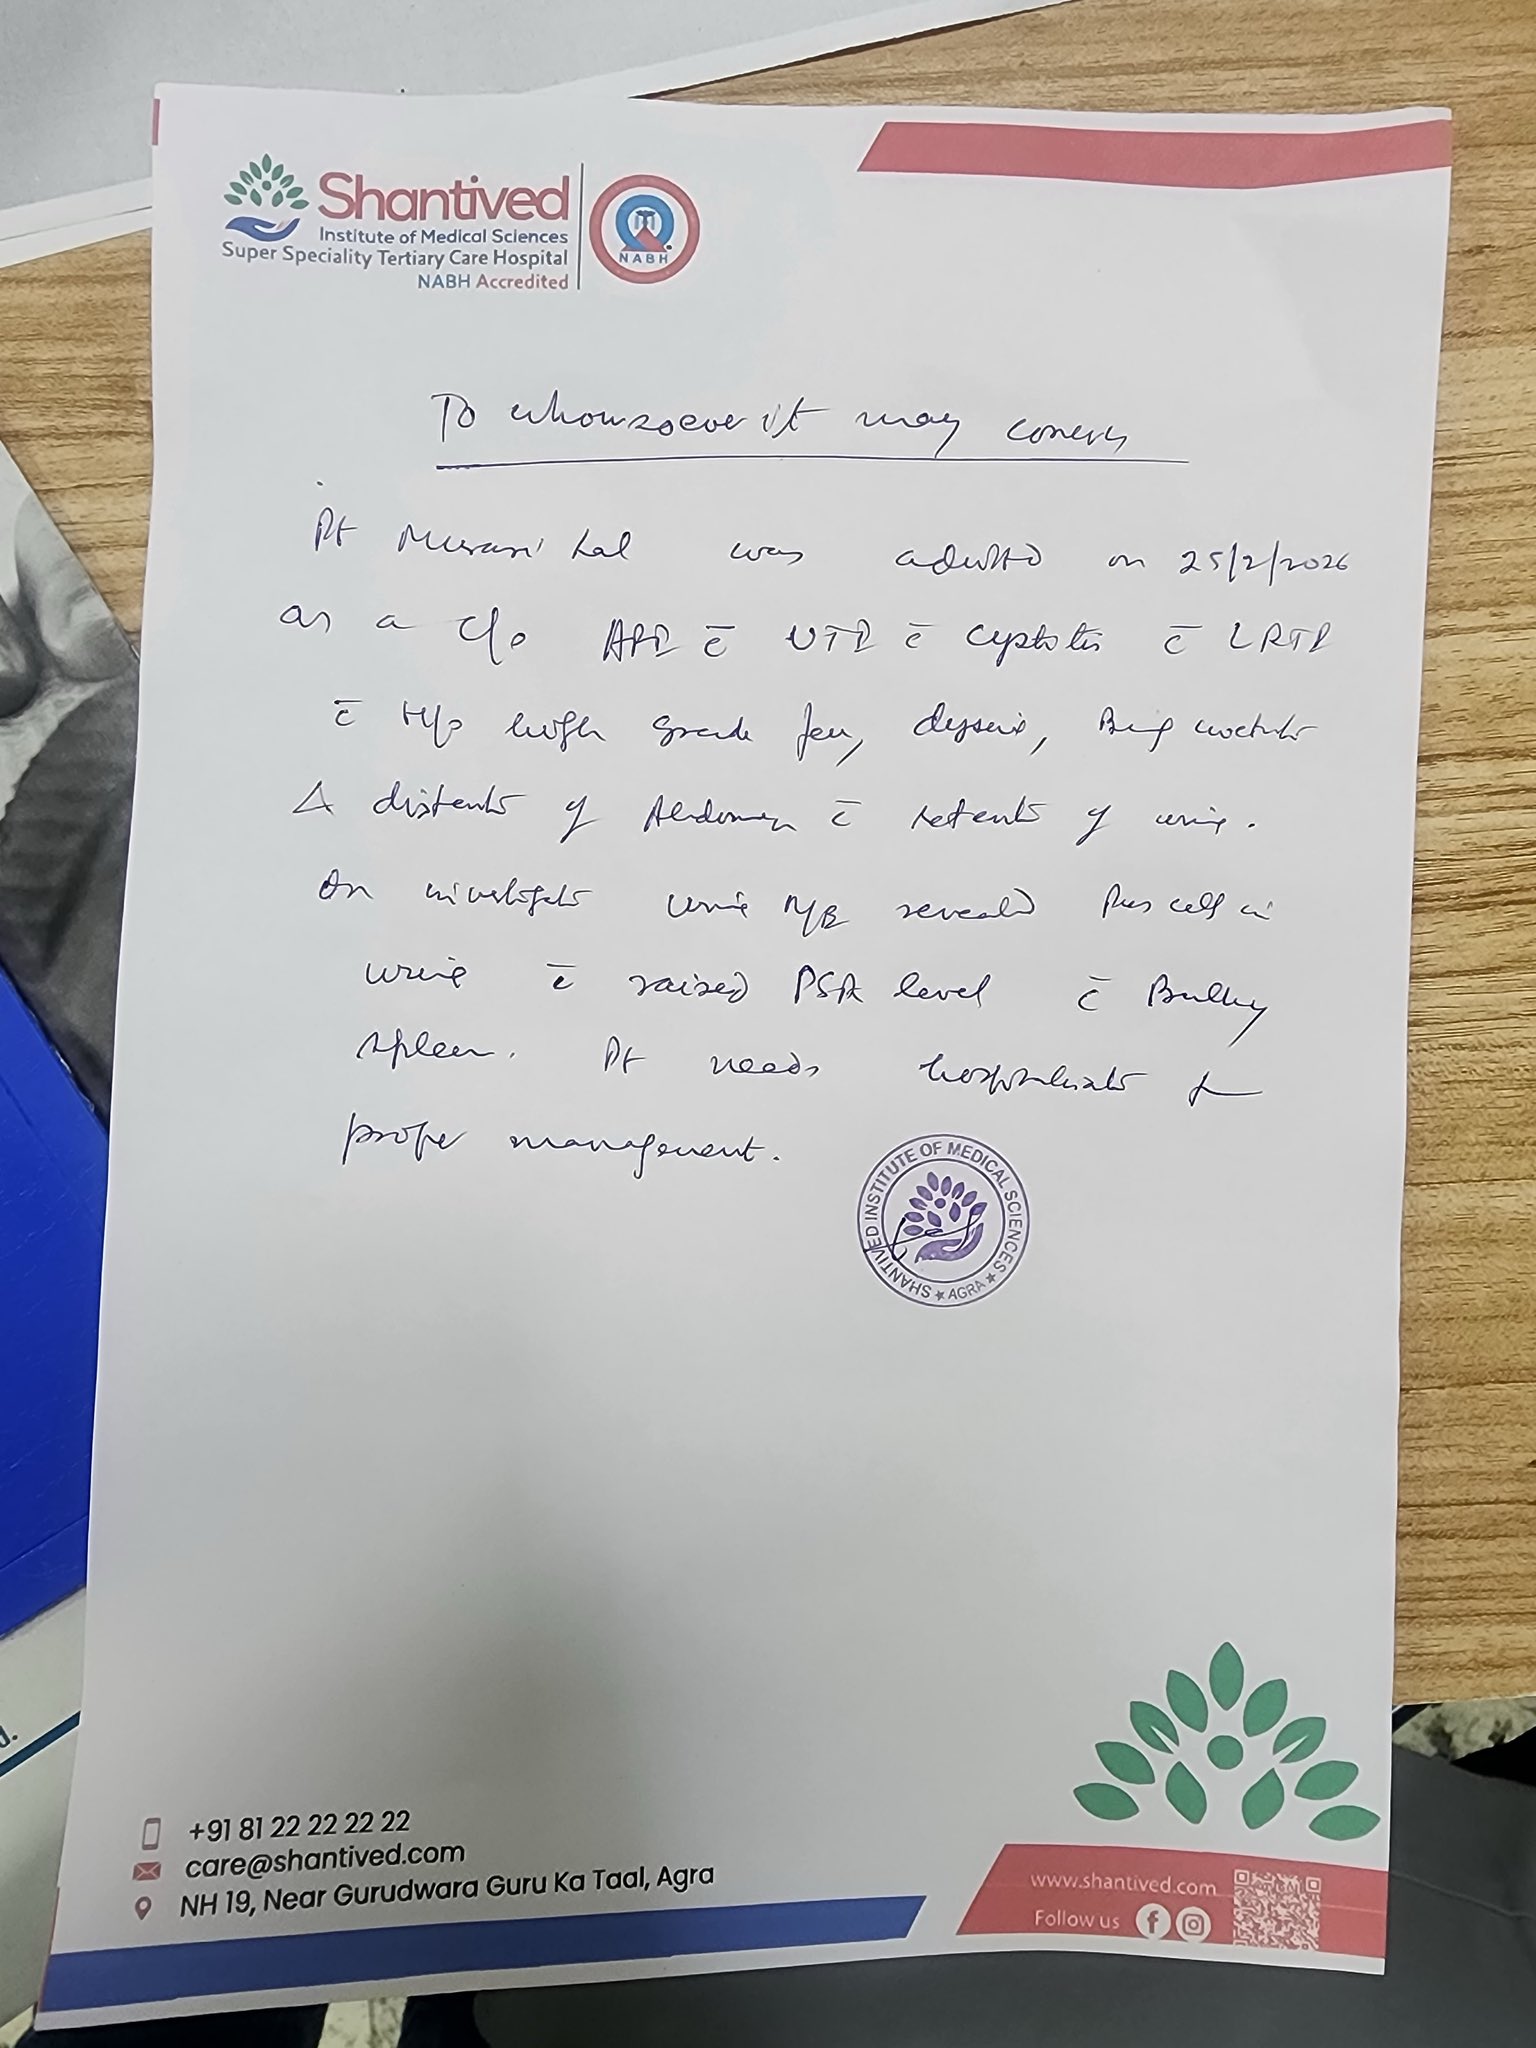 Shantived
Institute of Medical Sciences
Super Speciality Tertiary Care Hospital
NABH Accredited
NABH
To whomsoever it may concern
Pt Murari Lal was admitted on 25/2/2026
as a c/o c̄ UTI c̄ cystitis c̄ LRTI
c̄ H/o high grade fever, dysuria, Burning micturition
& distention of Abdomen c̄ retention of urine.
On investigation urine R/M revealed Pus cells in
urine c̄ raised PSA level c̄ Bulky
spleen. Pt needs hospitalisation for
proper management.
SHANTIVED INSTITUTE OF MEDICAL SCIENCES
★ AGRA ★
+91 81 22 22 22 22
care@shantived.com
NH 19, Near Gurudwara Guru Ka Taal, Agra
www.shantived.com
Follow us
d.